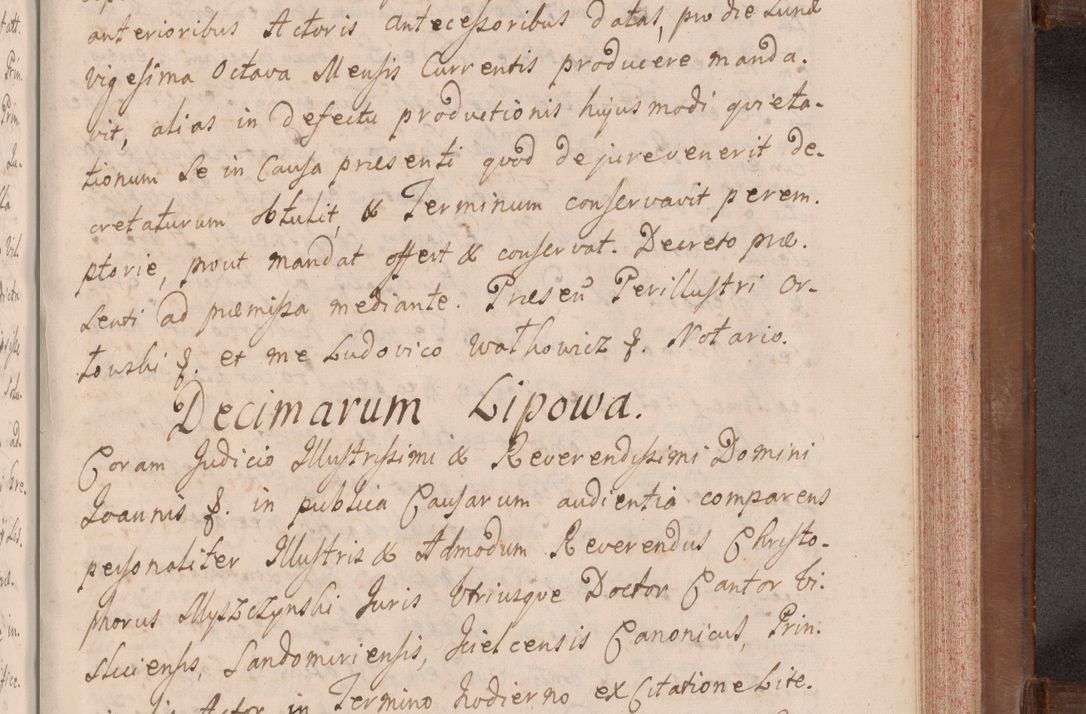 anterioribus Actoris Antecessoribus datas, pro die Lunæ
vigesima Octava Mensis Currentis producere manda.
vit, alias in defectu productionis hujusmodi quieta-
tionum se in Causa præsenti quod de jure venerit de-
cretaturum obtulit, & Terminum conservavit perem.
ptorie, prout mandat offert & conservat. Decreto præ.
senti ad præmissa mediante. Præseñ Perillustri Or-
towski &. et me Ludovico Wathowicz &. Notario.
Decimarum Lipowa.
Coram Judicio Illustrissimi & Reverendissimi Domini
Joannis &. in publica Causarum audientia comparens
personaliter Illustris & Admodum Reverendus Christo-
phorus Myszczynski Juris Utriusque Doctor Cantor Vi-
sliciensis, Sandomiriensis, Kielcensis Canonicus, Prin.
Actor in Termino hodierno ex Citatione Lite.